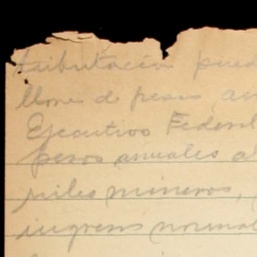 tributación pued
llone d pesos an
Ejecutivo Federal
pesos anuales al
riles mineros,
ingresos normal